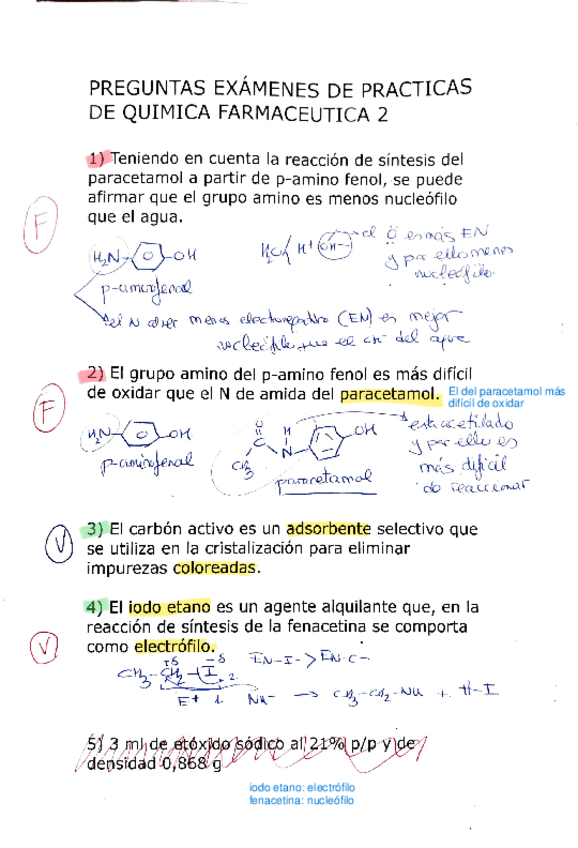 PREGUNTAS EXÁMENES DE PRACTICAS
DE QUIMICA FARMACEUTICA 2
1) Teniendo en cuenta la reacción de síntesis del
paracetamol a partir de p-amino fenol, se puede
afirmar que el grupo amino es menos nucleófilo
que el agua.
F
H2N OH
p-aminofenol
H+ OH-
el O es más EN
y por ello menos
nucleófilo
el N al ser menos electronegativo (EN) es mejor
nucleófilo que el OH- del agua
2) El grupo amino del p-amino fenol es más difícil
de oxidar que el N de amida del paracetamol.
El del paracetamol más
difícil de oxidar
F
H2N OH
p-aminofenol
O
C
CH3
H
N
OH
paracetamol
esta acetilado
y por ello es
más difícil
de reaccionar
3) El carbón activo es un adsorbente selectivo que
se utiliza en la cristalización para eliminar
impurezas coloreadas.
V
4) El iodo etano es un agente alquilante que, en la
reacción de síntesis de la fenacetina se comporta
como electrófilo.
V
+δ -δ
CH3-CH2-I
EN-I- > EN-C-
E+ 1. Nu- → CH3-CH2-Nu + H-I
2.
5) 3 ml de etóxido sódico al 21% p/p y de
densidad 0,868 g
iodo etano: electrófilo
fenacetina: nucleófilo